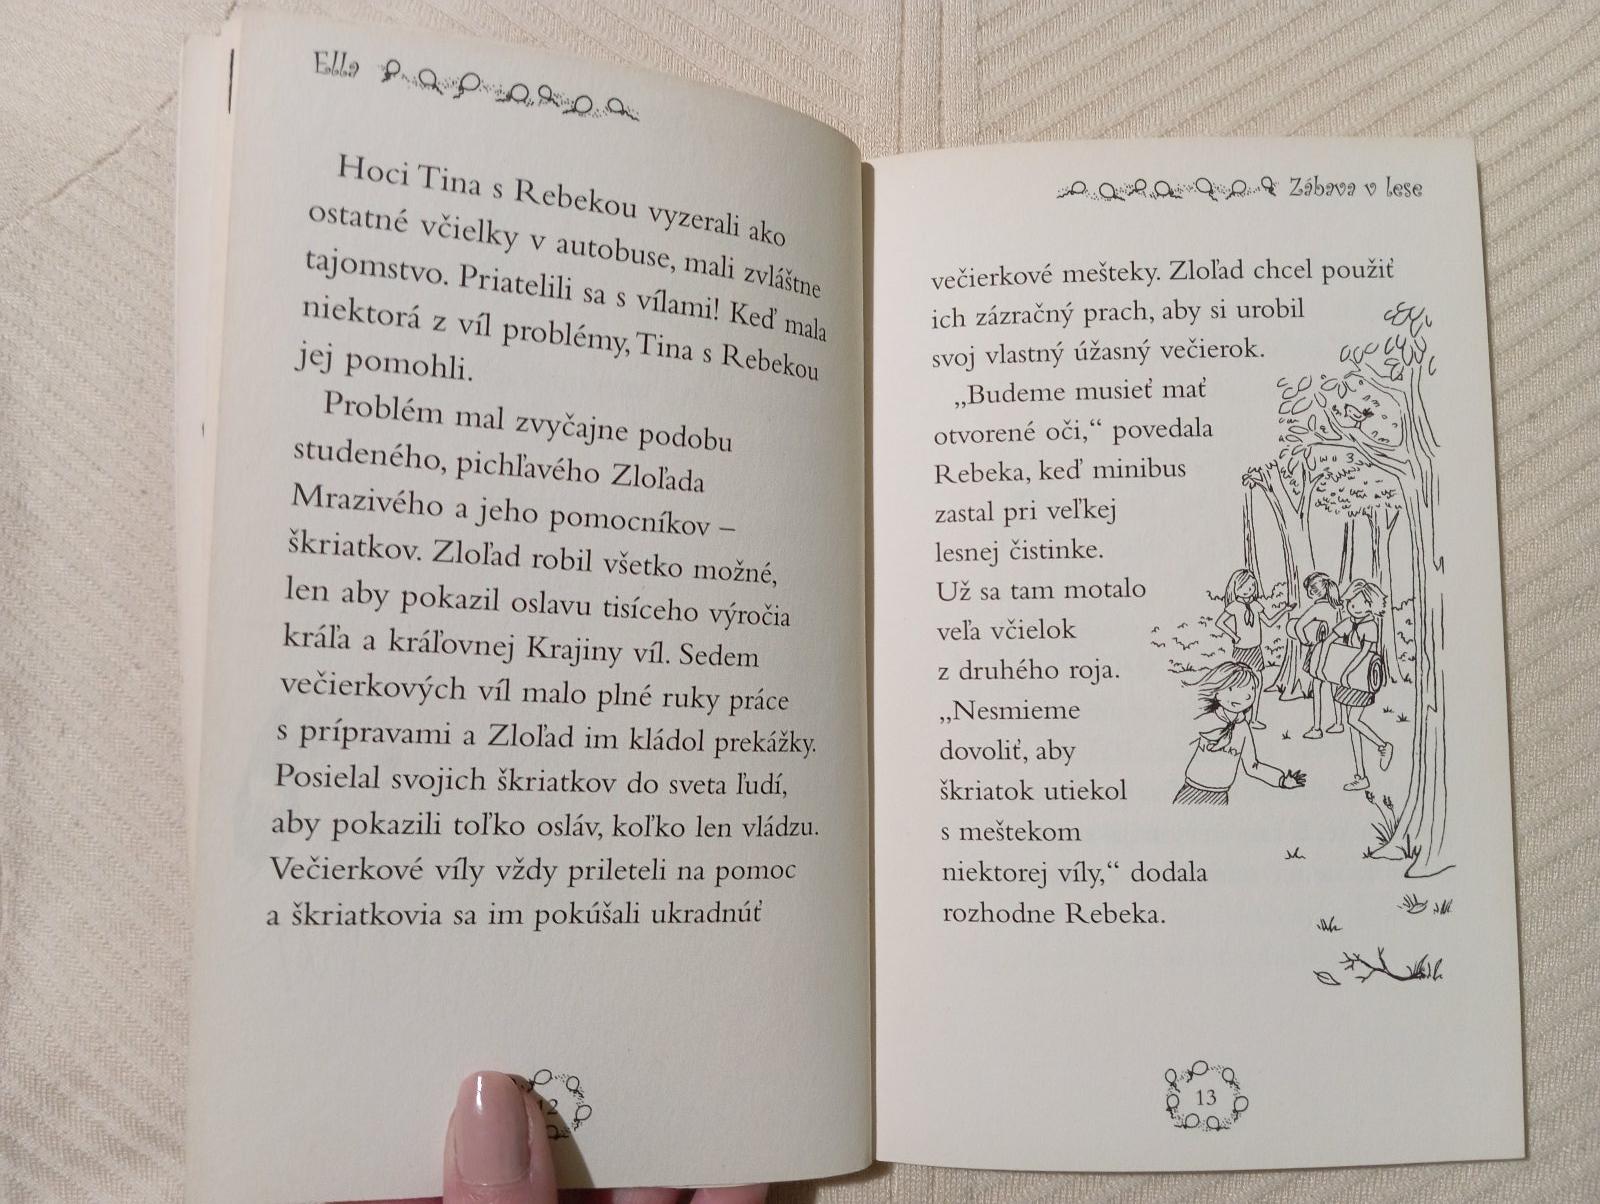 Ella
Hoci Tina s Rebekou vyzerali ako
ostatné včielky v autobuse, mali zvláštne
tajomstvo. Priatelili sa s vílami! Keď mala
niektorá z víl problémy, Tina s Rebekou
jej pomohli.
Problém mal zvyčajne podobu
studeného, pichľavého Zloľada
Mrazivého a jeho pomocníkov –
škriatkov. Zloľad robil všetko možné,
len aby pokazil oslavu tisíceho výročia
kráľa a kráľovnej Krajiny víl. Sedem
večierkových víl malo plné ruky práce
s prípravami a Zloľad im kládol prekážky.
Posielal svojich škriatkov do sveta ľudí,
aby pokazili toľko osláv, koľko len vládzu.
Večierkové víly vždy prileteli na pomoc
a škriatkovia sa im pokúšali ukradnúť
12
Zábava v lese
večierkové mešteky. Zloľad chcel použiť
ich zázračný prach, aby si urobil
svoj vlastný úžasný večierok.
„Budeme musieť mať
otvorené oči,“ povedala
Rebeka, keď minibus
zastal pri veľkej
lesnej čistinke.
Už sa tam motalo
veľa včielok
z druhého roja.
„Nesmieme
dovoliť, aby
škriatok utiekol
s meštekom
niektorej víly,“ dodala
rozhodne Rebeka.
13